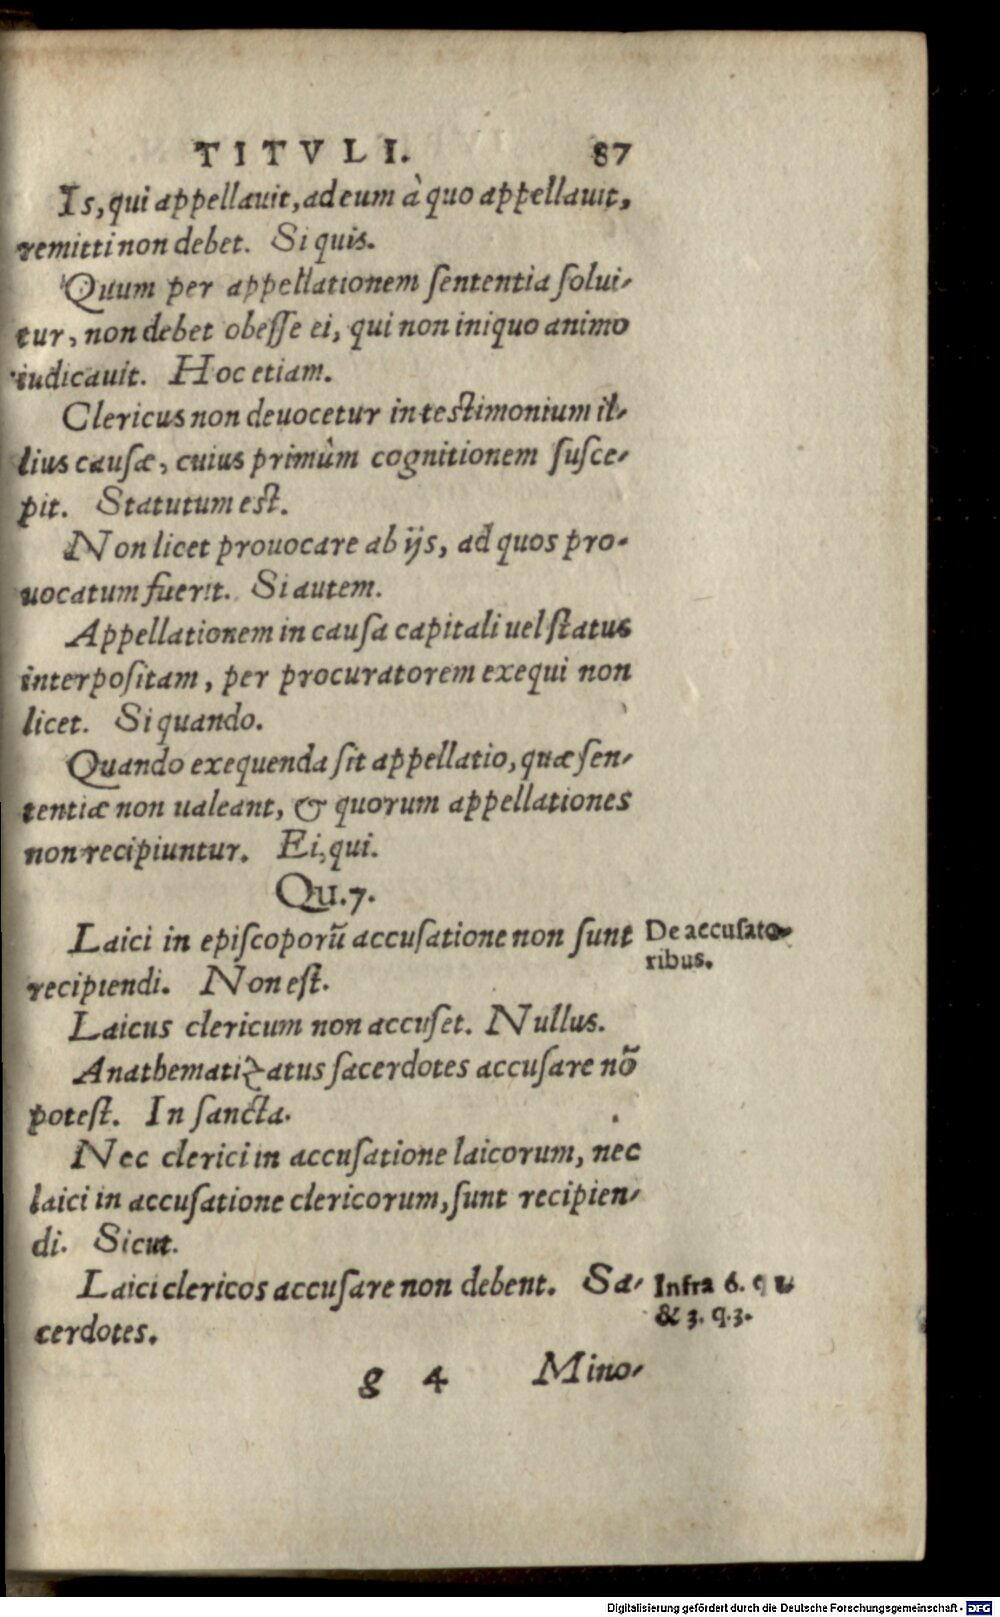 TITVLI. 87
Is, qui appellauit, ad eum à quo appellauit,
remitti non debet. Si quis.
Quum per appellationem sententia solui-
tur, non debet obesse ei, qui non iniquo animo
iudicauit. Hoc etiam.
Clericus non deuocetur in testimonium il-
lius causæ, cuius primùm cognitionem susce-
pit. Statutum est.
Non licet prouocare ab ijs, ad quos pro-
uocatum fuerit. Si autem.
Appellationem in causa capitali uel status
interpositam, per procuratorem exequi non
licet. Si quando.
Quando exequenda sit appellatio, quæ sen-
tentiæ non ualeant, & quorum appellationes
non recipiuntur. Ei, qui.
Qu. 7.
Laici in episcoporũ accusatione non sunt
De accusato-
ribus.
recipiendi. Non est.
Laicus clericum non accuset. Nullus.
Anathematizatus sacerdotes accusare nõ
potest. In sancta.
Nec clerici in accusatione laicorum, nec
laici in accusatione clericorum, sunt recipien-
di. Sicut.
Laici clericos accusare non debent. Sa-
Infra 6. q
& 3. q.3.
cerdotes.
g 4 Mino-
Digitalisierung gefördert durch die Deutsche Forschungsgemeinschaft - DFG